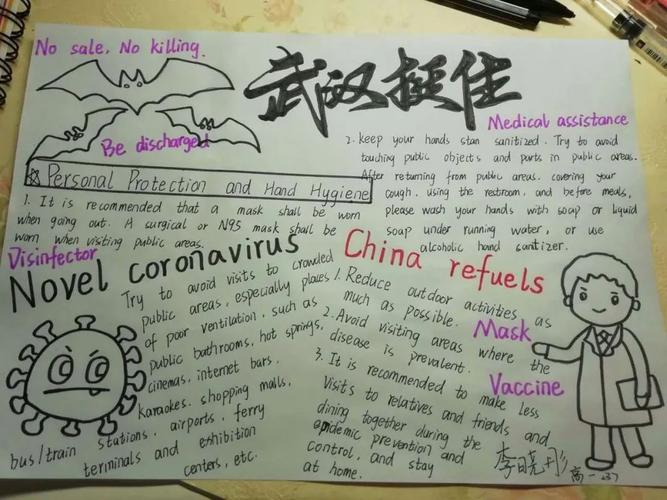 No sale, No killing.
武汉挺住
Be discharged
Medical assistance
☆ Personal Protection and Hand Hygiene
1. It is recommended that a mask shall be worn
when going out. A surgical or N95 mask shall be
worn when visiting public areas.
2. keep your hands stan sanitized. Try to avoid
touching public objects and parts in public areas.
After returning from public areas, covering your
cough, using the restroom, and before meals,
please wash your hands with soap or liquid
soap under running water, or use
alcoholic hand sanitizer.
Disinfector
Novel coronavirus
Try to avoid visits to crowded
public areas, especially places
of poor ventilation, such as
public bathrooms, hot springs,
cinemas, internet bars.
Karaokes. shopping malls,
bus/train stations, airports, ferry
terminals and exhibition
centers, etc.
China refuels
1. Reduce outdoor activities as
much as possible.
2. Avoid visiting areas where the
disease is prevalent.
3. It is recommended to make less
visits to relatives and friends and
dining together during the
epidemic prevention and
control, and stay
at home.
Mask
Vaccine
李晓彤
高一